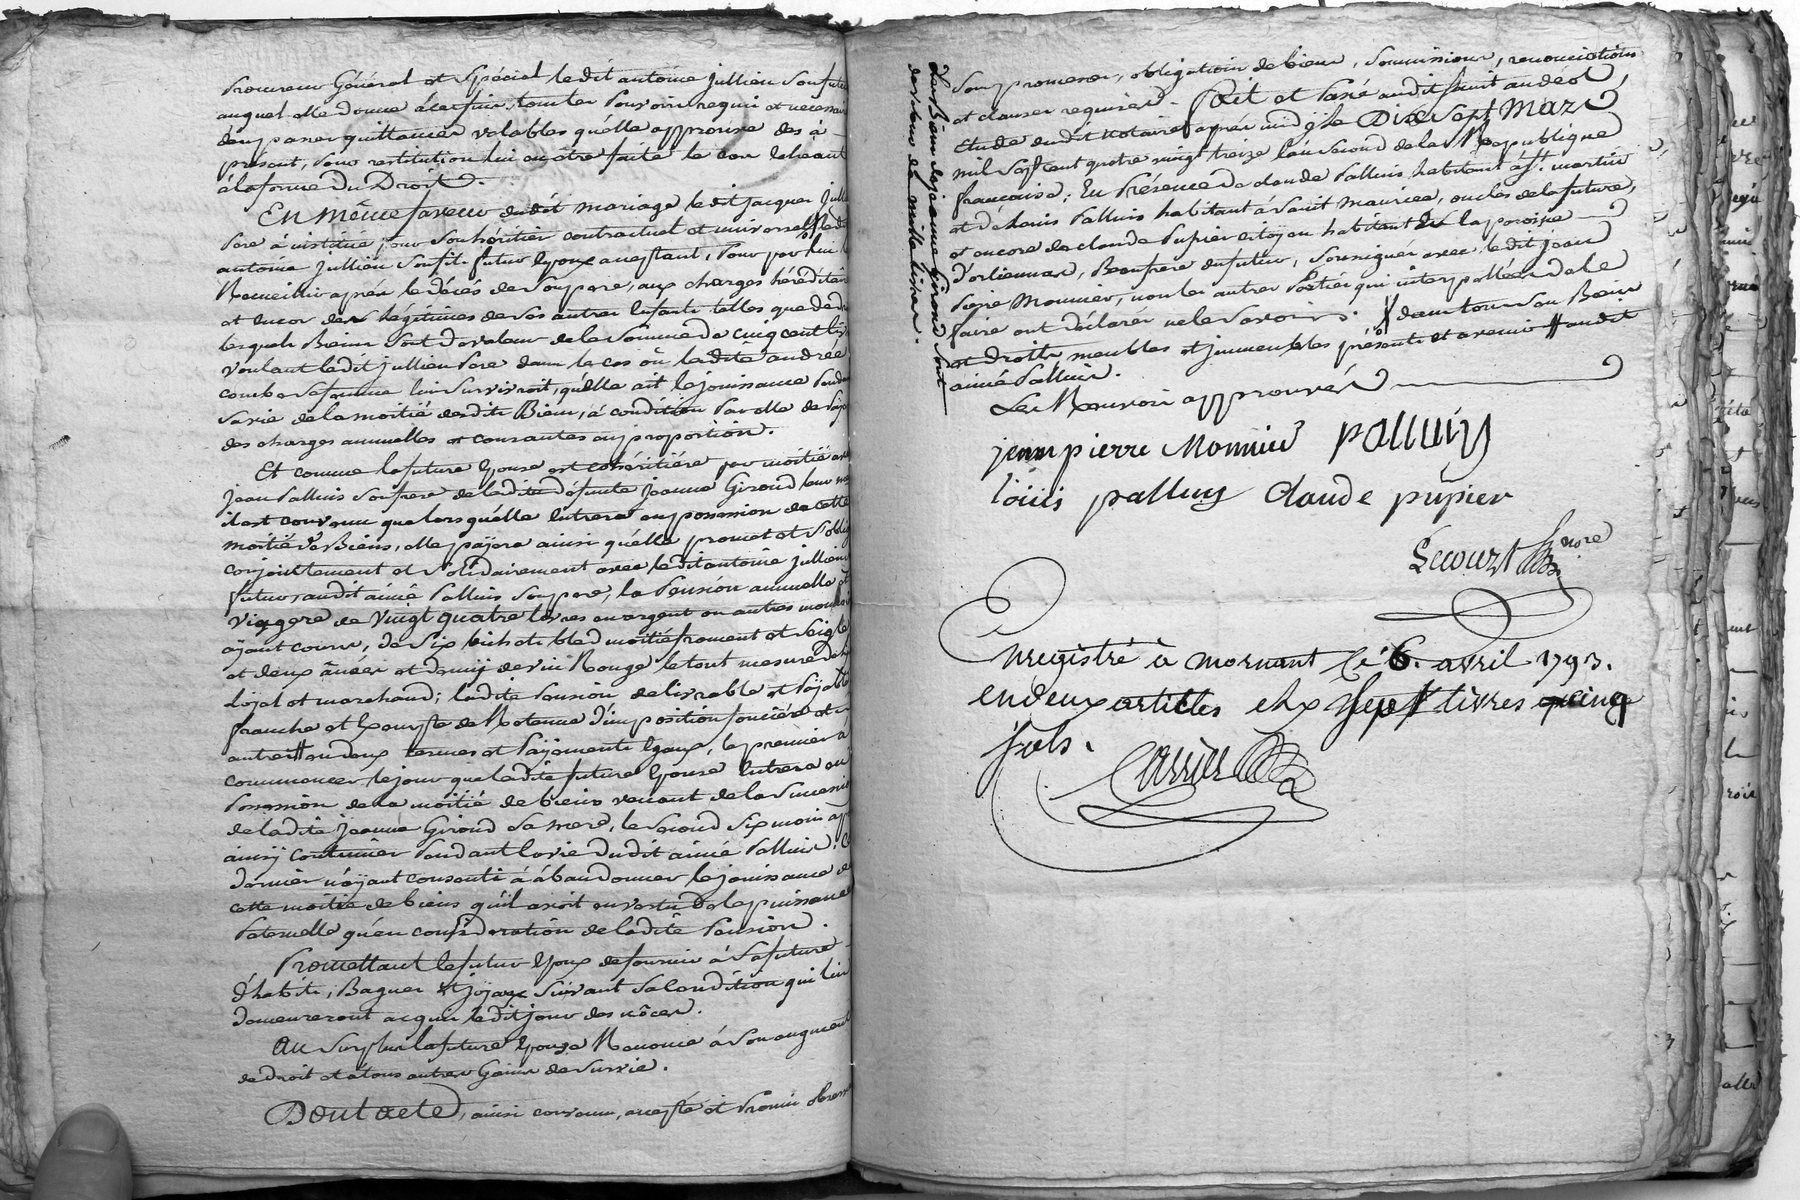 Procureur Général et Spécial ledit antoine jullien son futur
auquel elle donne à cet fin, tout les Pouvoirs requis et necessaires
d'en passer quittances valables qu'elle approuve dès à
présent, sous restitution lui en être faite le cas échéant
à la forme du Droit.
En même faveur dudit mariage ledit jacques jullien
Pere à institué pour son héritier contractuel et universel ledit
antoine jullien son fils futur Epoux acceptant, Pour par lui
Recueillir après le décès de son pere, aux charges héréditaires
et encor des légitimes de ses autres Enfants telles que de droit
lesquels Biens sont de valeur de la somme de cinq cent livres
voulant ledit jullien Pere dans le cas où ladite andrée
combe sa femme lui Survivroit, qu'elle ait le jouissance Pendant
Sa vie de la moitié desdits Biens, à condition Par elle de Payer
des charges annuelles et courantes en proportion.
Et comme la future Epouse est cohéritière par moitié avec
jean Palluis son frere de ladite défunte jeanne Giroud leur mere
il est convenu que lors qu'elle Entrera en possession de cette
moitié de Biens, elle payera ainsi qu'elle promet et s'oblige
conjointement et Solidairement avec ledit antoine jullien
futur, audit aimé Palluis son pere, la Pension annuelle et
viagere de vingt quatre livres en argent ou autres monnoies
ayant cours, de Six bichets bled moitié froment et seigle
et deux ânées et demij de vin Rouge le tout mesure de
loyal et marchand; ladite Pension delivrable et Payable
franche et Exempte de Retenue d'imposition fonciére et
autre # en deux termes et Payements Egaux, le premier à
commencer le jour que ladite future Epouse Entrera en
Possession de la moitié de biens venant de la Succession
de ladite jeanne Giroud sa mere, le Second Six mois après
ainsij continuer Pendant la vie dudit aimé Palluis. Ce
dernier n'ayant consenti à abandonner le jouissance de
cette moitié de biens qu'il avoit en vertu de la puissance
Paternelle qu'en considération de ladite Pension.
Promettant le futur Epoux de fournir à sa future
d'habits, Bagues et joyaux suivant Sa Condition qui lui
demeureront acquis ledit jour des nôces.
Au Surplus la future Epouse Renonce à son augment
de droit et à tous autres Gains de Survie.
Dont acte, ainsi convenu, accepté et Promis observer
Sous promesses, obligation de biens, Soumissions, renonciations
et clauses requises. Fait et Passé audit Saint andéol,
Etude dudit notaire après midij le Dix Sept Mars
mil Sept cent quatre vingt treize l'an Second de la Republique
française; En Présence de claude Palluis habitant à St. martin
et de Louis Palluis habitant à Saint maurice, oncles de la future,
et encore de claude Pupier citoyen habitant En la paroisse
d'orliennas, Beaufrere du futur, Soussignés avec ledit jean
Pierre Monnier, non les autres Parties qui interpellées de le
faire ont déclarés ne le Savoir. dans tous Ses Biens
et droits meubles et immeubles présents et avenir # audit
aimé Palluis.
Les Renvois approuvés
Les Biens de jeanne Giroud Sont
de valeur de mille livres.
jean pierre Monnier palluis
loüis palluy claude pupier
Lecourt nore
Enregistré à mornant le 6. avril 1793.
en deux articles et reçu Sept livres cinq
sols.